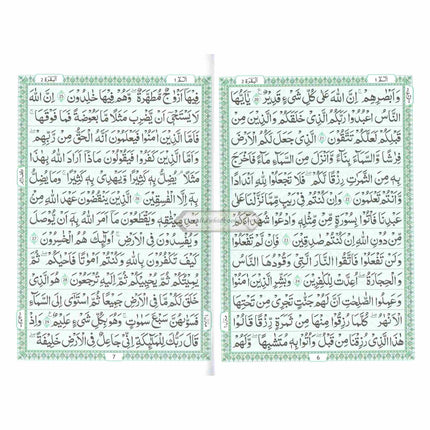 الٓمّٓ ١
البقرة ٢
وَاَبْصَارِهِمْ ؕ اِنَّ اللّٰهَ عَلٰى كُلِّ شَىْءٍ قَدِيْرٌ ۝ يٰۤاَيُّهَا
النَّاسُ اعْبُدُوْا رَبَّكُمُ الَّذِىْ خَلَقَكُمْ وَالَّذِيْنَ مِنْ
قَبْلِكُمْ لَعَلَّكُمْ تَتَّقُوْنَ ۝ الَّذِىْ جَعَلَ لَكُمُ الْاَرْضَ
فِرَاشًا وَّالسَّمَآءَ بِنَآءً وَّاَنْزَلَ مِنَ السَّمَآءِ مَآءً فَاَخْرَجَ
بِهٖ مِنَ الثَّمَرٰتِ رِزْقًا لَّكُمْ ۚ فَلَا تَجْعَلُوْا لِلّٰهِ اَنْدَادًا
وَّاَنْتُمْ تَعْلَمُوْنَ ۝ وَاِنْ كُنْتُمْ فِىْ رَيْبٍ مِّمَّا نَزَّلْنَا عَلٰى
عَبْدِنَا فَاْتُوْا بِسُوْرَةٍ مِّنْ مِّثْلِهٖ ۪ وَادْعُوْا شُهَدَآءَكُمْ
مِّنْ دُوْنِ اللّٰهِ اِنْ كُنْتُمْ صٰدِقِيْنَ ۝ فَاِنْ لَّمْ تَفْعَلُوْا
وَلَنْ تَفْعَلُوْا فَاتَّقُوا النَّارَ الَّتِىْ وَقُوْدُهَا النَّاسُ
وَالْحِجَارَةُ ۚ اُعِدَّتْ لِلْكٰفِرِيْنَ ۝ وَبَشِّرِ الَّذِيْنَ اٰمَنُوْا
وَعَمِلُوا الصّٰلِحٰتِ اَنَّ لَهُمْ جَنّٰتٍ تَجْرِىْ مِنْ تَحْتِهَا
الْاَنْهٰرُ ؕ كُلَّمَا رُزِقُوْا مِنْهَا مِنْ ثَمَرَةٍ رِّزْقًا ۙ قَالُوْا
هٰذَا الَّذِىْ رُزِقْنَا مِنْ قَبْلُ ۙ وَاُتُوْا بِهٖ مُتَشَابِهًا ؕ وَلَهُمْ
6
الٓمّٓ ١
البقرة ٢
فِيْهَاۤ اَزْوَاجٌ مُّطَهَّرَةٌ ۙ وَّهُمْ فِيْهَا خٰلِدُوْنَ ۝ اِنَّ اللّٰهَ
لَا يَسْتَحْىٖۤ اَنْ يَّضْرِبَ مَثَلًا مَّا بَعُوْضَةً فَمَا فَوْقَهَا ؕ
فَاَمَّا الَّذِيْنَ اٰمَنُوْا فَيَعْلَمُوْنَ اَنَّهُ الْحَقُّ مِنْ رَّبِّهِمْ ۚ
وَاَمَّا الَّذِيْنَ كَفَرُوْا فَيَقُوْلُوْنَ مَاذَاۤ اَرَادَ اللّٰهُ بِهٰذَا
مَثَلًا ۘ يُضِلُّ بِهٖ كَثِيْرًا ۙ وَّيَهْدِىْ بِهٖ كَثِيْرًا ؕ وَمَا يُضِلُّ
بِهٖۤ اِلَّا الْفٰسِقِيْنَ ۝ الَّذِيْنَ يَنْقُضُوْنَ عَهْدَ اللّٰهِ مِنْۢ
بَعْدِ مِيْثَاقِهٖ ۪ وَيَقْطَعُوْنَ مَاۤ اَمَرَ اللّٰهُ بِهٖۤ اَنْ يُّوْصَلَ
وَيُفْسِدُوْنَ فِى الْاَرْضِ ؕ اُولٰٓئِكَ هُمُ الْخٰسِرُوْنَ ۝
كَيْفَ تَكْفُرُوْنَ بِاللّٰهِ وَكُنْتُمْ اَمْوَاتًا فَاَحْيَاكُمْ ۚ ثُمَّ
يُمِيْتُكُمْ ثُمَّ يُحْيِيْكُمْ ثُمَّ اِلَيْهِ تُرْجَعُوْنَ ۝ هُوَ الَّذِىْ
خَلَقَ لَكُمْ مَّا فِى الْاَرْضِ جَمِيْعًا ۗ ثُمَّ اسْتَوٰۤى اِلَى السَّمَآءِ
فَسَوّٰىهُنَّ سَبْعَ سَمٰوٰتٍ ؕ وَهُوَ بِكُلِّ شَىْءٍ عَلِيْمٌ ۝ وَاِذْ
قَالَ رَبُّكَ لِلْمَلٰٓئِكَةِ اِنِّىْ جَاعِلٌ فِى الْاَرْضِ خَلِيْفَةً ؕ
7